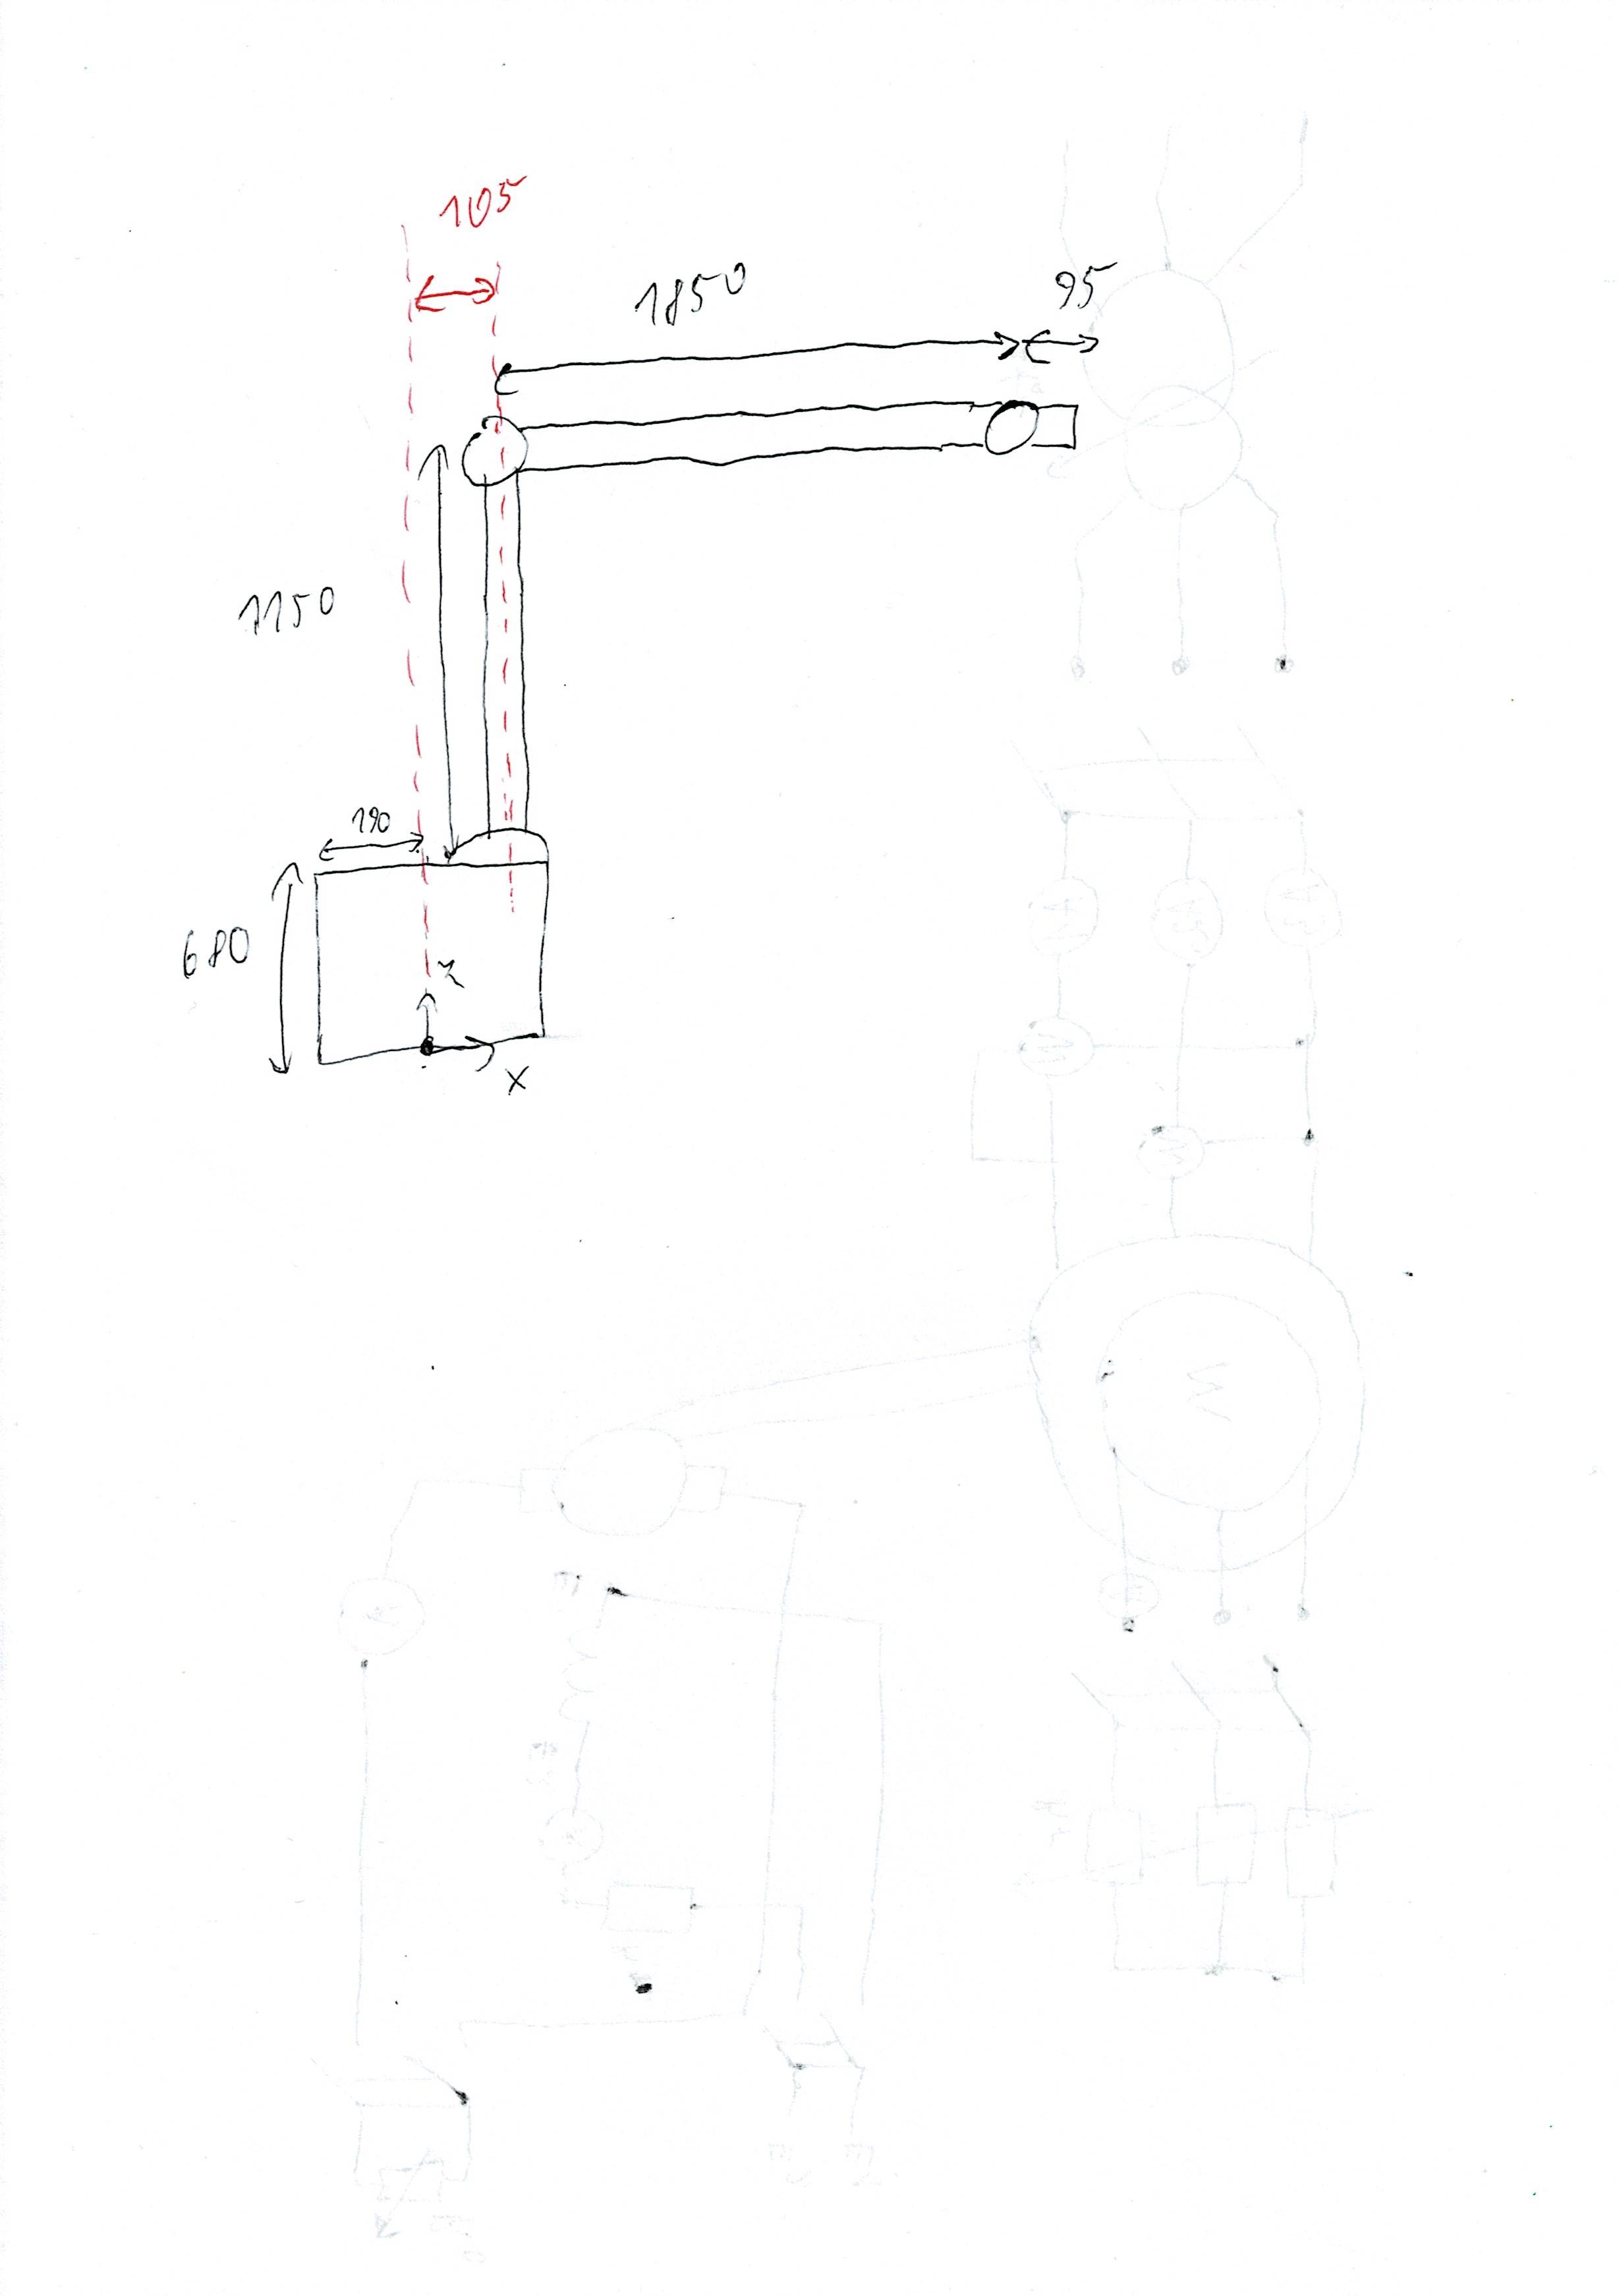 105
1850
95
1150
190
680
z
x